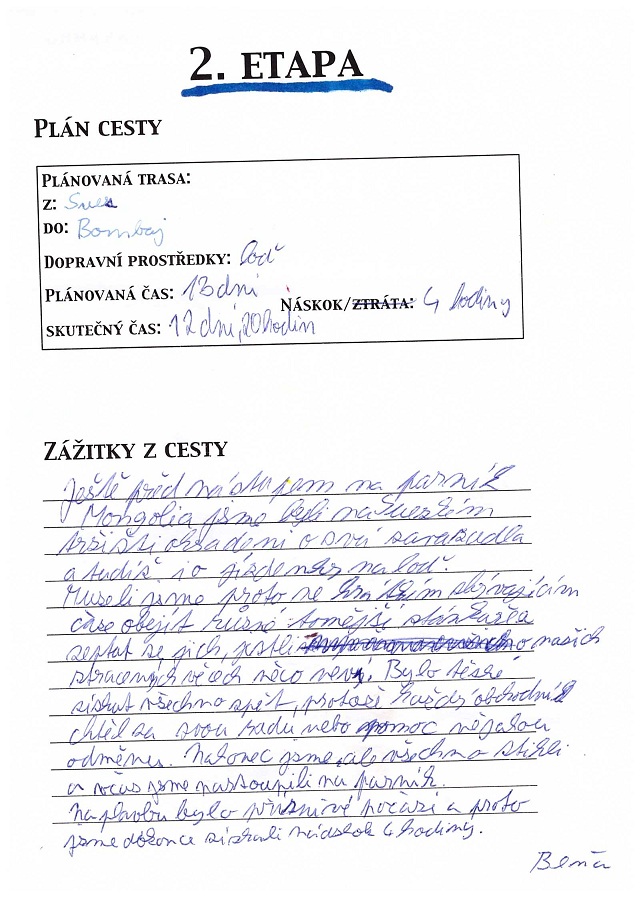 2. ETAPA
PLÁN CESTY
PLÁNOVANÁ TRASA:
Z: Suez
DO: Bombaj
DOPRAVNÍ PROSTŘEDKY: loď
PLÁNOVANÁ ČAS: 13 dní
NÁSKOK/ZTRÁTA: 4 hodiny
SKUTEČNÝ ČAS: 12 dní, 20 hodin
ZÁŽITKY Z CESTY
Ještě před nástupem na parník
Mongolia jsme byli na Suezkém
tržišti okradeni o svá zavazadla
a tudíž i o jízdenky na loď.
Museli jsme proto ve krátkém zbývajícím
čase obejít různé tomější stánkaře a
zeptat se jich, jestli o našich
ztracených věcech něco neví. Bylo těžké
získat všechno zpět, protože každý obchodník
chtěl za svou radu nebo pomoc nějakou
odměnu. Nakonec jsme ale všechno stihli
a včas jsme nastoupili na parník.
Na plavbu bylo příznivé počasí a proto
jsme dokonce získali náskok 4 hodiny.